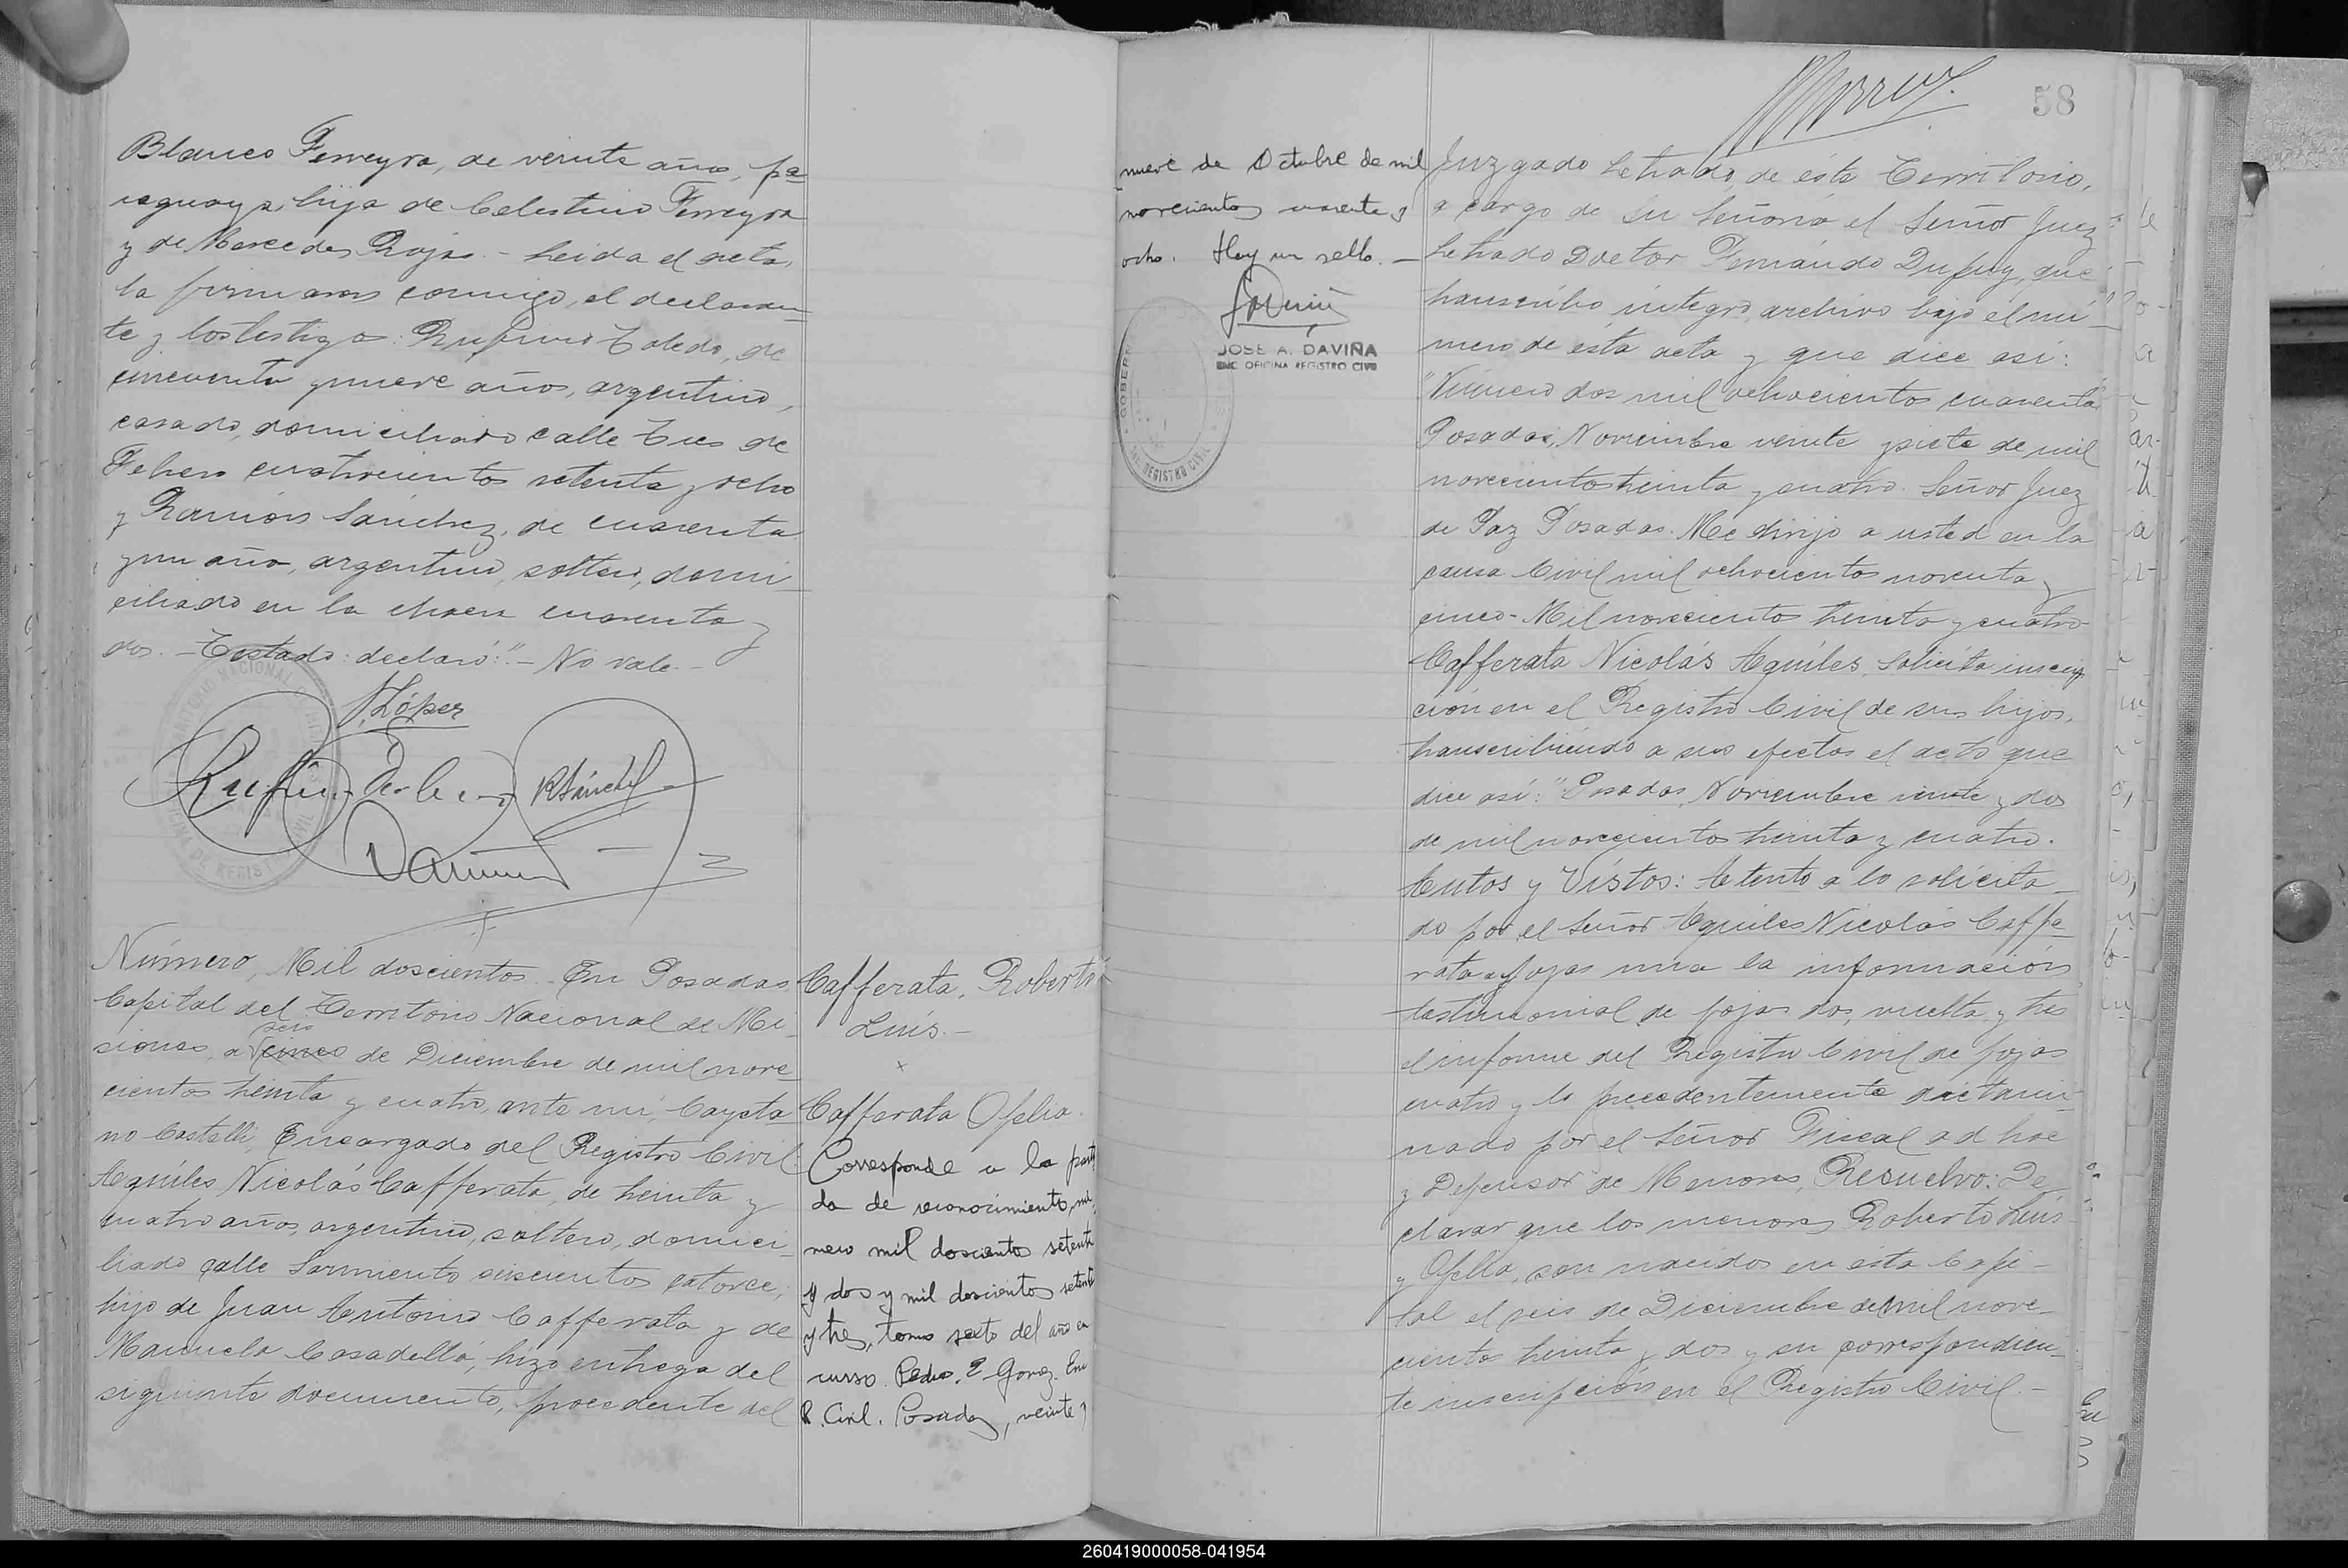 Blanco Ferreyra, de veinte años, pa
raguaya, hija de Celestino Ferreyra
y de Mercedes Rojas.- Leida el acta,
la firmaron conmigo, el declaran
te y los testigos: Rufino Toledo, de
cincuenta y nueve años, argentino,
casado, domiciliado calle Tres de
Febrero cuatrocientos setenta y ocho
y Ramón Sánchez, de cuarenta
y un año, argentino, soltero, domi-
ciliado en la chacra cuarenta y
dos.- Testado: declaró:"- No vale.-
López
Rufino Toledo RSánchez
Número, Mil doscientos.- En Posadas
Capital del Territorio Nacional de Mi-
seis
siones, a cinco de Diciembre de mil nove-
cientos treinta y cuatro, ante mí, Cayeta
no Castelli, Encargado del Registro Civil:
Aquiles Nicolás Cafferata, de treinta y
cuatro años, argentino, soltero, domici-
liado calle Sarmiento seiscientos catorce,
hijo de Juan Antonio Cafferata y de
Manuela Casadellá, hizo entrega del
siguiente documento, procedente del
Cafferata, Roberto
Luís.-
x
Cafferata Ofelia.
Corresponde a la parti
da de reconocimiento, nú
mero mil doscientos setenta
y dos y mil doscientos setenta
y tres, tomo sexto del año en
curso. Pedro. E. Gomez. Enc
R. Civil. Posadas, veinte y
nueve de Octubre de mil
novecientos cuarenta y
ocho. Hay un sello.-
JOSE A. DAVIÑA
ENC. OFICINA REGISTRO CIVIL
58
Juzgado Letrado, de éste Territorio,
a cargo de Su Señoría el Señor Juez
Letrado Doctor Fernándo Dupuy, que
transcribo integro, archivo bajo el nú-
mero de ésta acta y que dice así:
"Número dos mil ochocientos cuarenta.
Posadas, Noviembre veinte y siete de mil
novecientos treinta y cuatro. Señor Juez
de Paz Posadas. Me dirijo a usted en la
causa Civil mil ochocientos noventa y
cinco- Mil novecientos treinta y cuatro-
Cafferata Nicolás Aquiles, Solicita inscrip
ción en el Registro Civil de sus hijos,
transcribiendo a sus efectos el acto que
dice así: "Posadas, Noviembre veinte y dos
de mil novecientos treinta y cuatro.
Autos y Vistos: Atento a lo solicita-
do por el Señor Aquiles Nicolás Caffe
rata a fojas una la información
testimonial de fojas dos, vuelta y tres
el informe del Registro Civil de fojas
cuatro y lo precedentemente dictami-
nado por el Señor Fiscal ad hoc
y Defensor de Menores, Resuelvo: De
clarar que los menores Roberto Luis
y Ofelia, son nacidos en ésta Capi-
tal el seis de Diciembre de mil nove-
cientos treinta y dos y su correspondien-
te inscripción en el Registro Civil.-
260419000058-041954